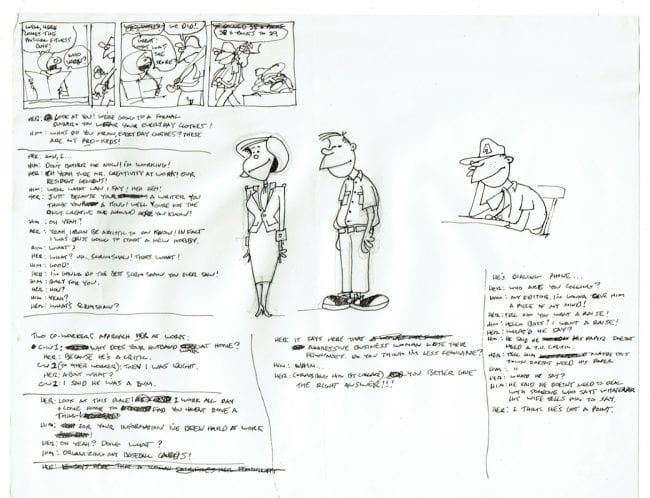 WELL, HERE
COMES THE
PHYSICAL FITNESS
WHO
WON?
WE DID!
GREAT!
WHAT WAS
THE
SCORE?
38 & 29
HER: LOOK AT YOU! WE'RE GOING TO A FORMAL
DINNER & YOU WEAR YOUR EVERYDAY CLOTHES!
HIM: WHAT DO YOU MEAN, EVERYDAY CLOTHES? THESE
ARE MY PRO-KEDS!
HER: HON, I...
HIM: DON'T BOTHER ME NOW! I'M WORKING!
HER: OH YEAH SURE MR. CREATIVITY AT WORK! OUR
RESIDENT GENIUS!
HIM: WELL WHAT CAN I SAY! HEH HEH!
HER: JUST BECAUSE YOU'RE A WRITER YOU
THINK YOU'RE A THING! WELL YOU'RE NOT THE
ONLY CREATIVE ONE AROUND HERE YOU KNOW!
HIM: OH YEAH?
HER: YEAH, I CAN BE ARTISTIC TOO YOU KNOW! IN FACT
I WAS JUST GOING TO START A NEW HOBBY.
HIM: WHAT?
HER: WHAT? UH, SCRIMSHAW! THAT'S WHAT!
HIM: GOOD!
HER: I'M GONNA DO THE BEST SCRIMSHAW YOU EVER SAW!
HIM: BULLY FOR YOU.
HER: HON?
HIM: YEAH?
HER: WHAT'S SCRIMSHAW?
TWO CO-WORKERS APPROACH HER AT WORK:
CW1: WHY DOES YOUR HUSBAND WORK AT HOME?
HER: BECAUSE HE'S A CRITIC.
CW2 (TO OTHER WORKER): THEN I WAS RIGHT.
HER: ABOUT WHAT?
CW2: I SAID HE WAS A BUM.
HER: LOOK AT THIS PLACE! I WORK ALL DAY
& COME HOME TO FIND YOU HAVEN'T DONE A
THING
HIM: FOR YOUR INFORMATION I'VE BEEN HARD AT WORK
HER: OH YEAH? DOING WHAT?
HIM: ORGANIZING MY BASEBALL CARDS!
HER: IT SAYS HERE THAT
AGGRESSIVE BUSINESS WOMAN LOSE THEIR
FEMININITY. DO YOU THINK I'M LESS FEMININE?
HIM:
HER: YOU BETTER GIVE
THE RIGHT ANSWER!!!
HE'S DIALING PHONE...
HER: WHO ARE YOU CALLING?
HIM: MY EDITOR. I'M GONNA GIVE HIM
A PIECE OF MY MIND!
HER: TELL HIM YOU WANT A RAISE!
HIM: HELLO BOSS? I WANT A RAISE!
HER: WHAT'D HE SAY?
HIM: HE SAID HE PAPER DOESN'T
NEED A T.V. CRITIC.
HER: TELL HIM MAYBE OUR
TOWN DOESN'T NEED HIS PAPER.
HIM: "
HER: WHAT'D HE SAY?
HIM: HE SAID HE DOESN'T NEED TO DEAL
WITH SOMEONE WHO SAYS WHATEVER
HIS WIFE TELLS HIM TO SAY.
HER: I THINK HE'S GOT A POINT.